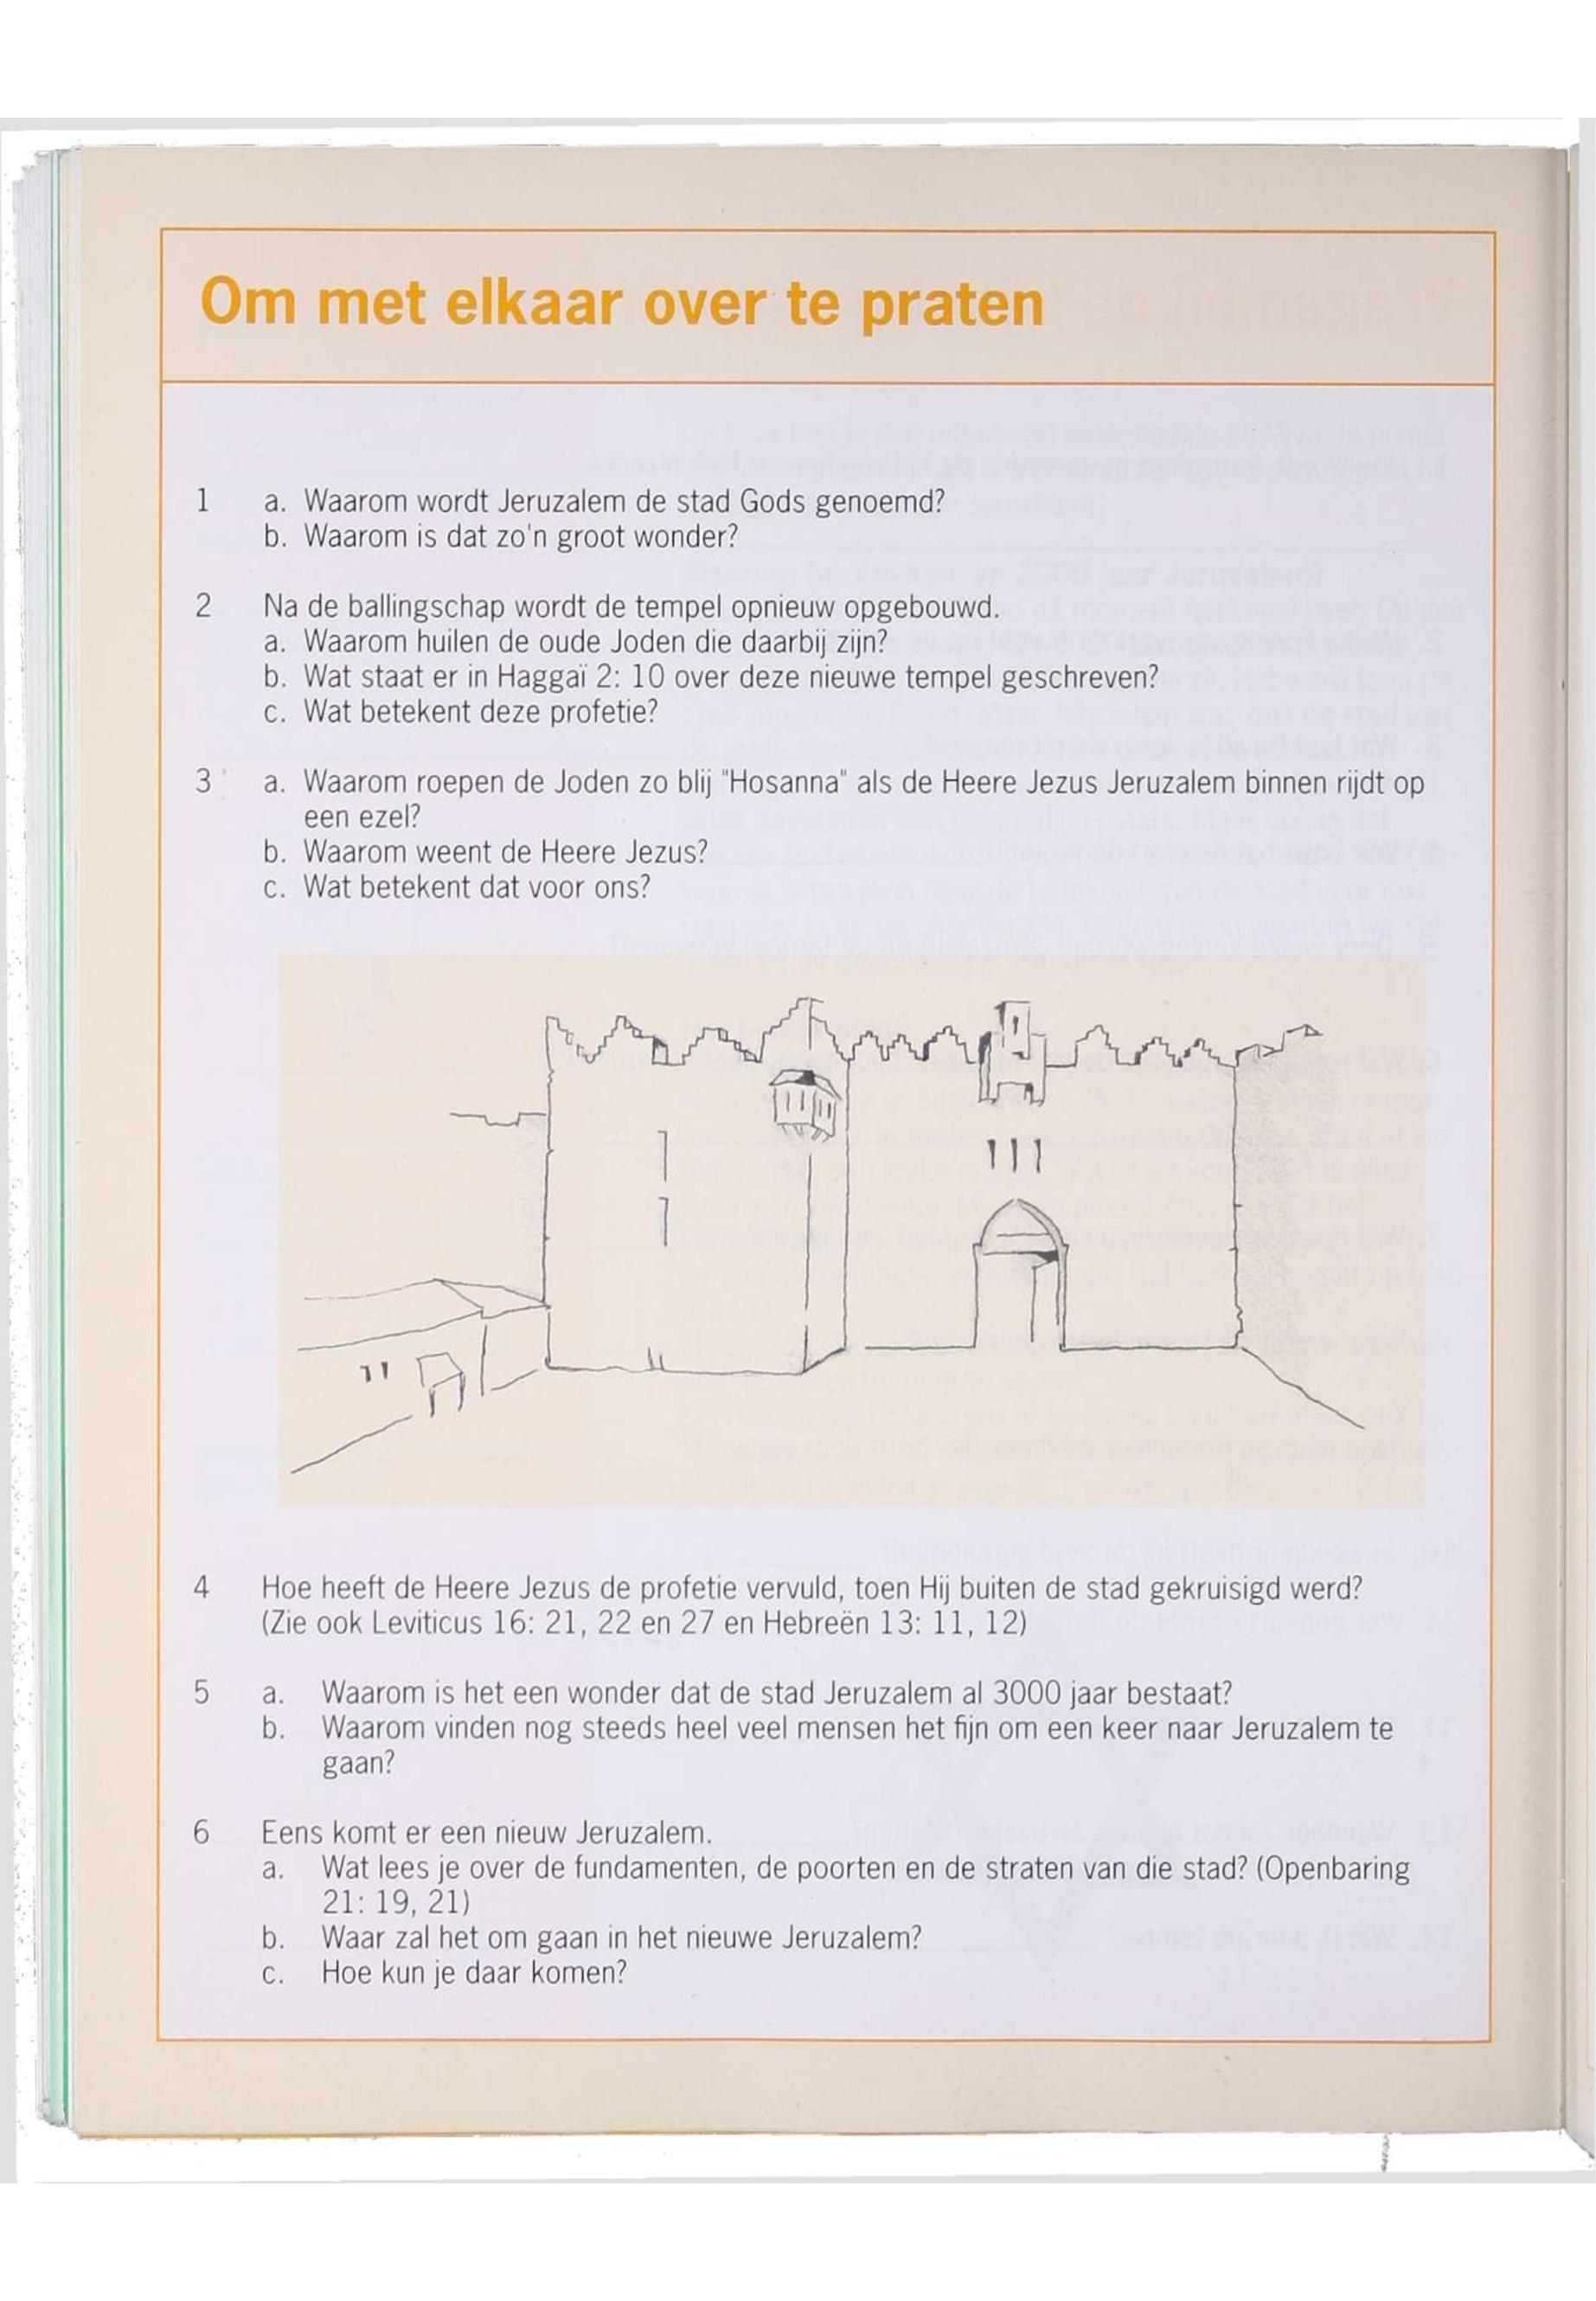 Om met elkaar over te praten
1 a. Waarom wordt Jeruzalem de stad Gods genoemd?
b. Waarom is dat zo'n groot wonder?
2 Na de ballingschap wordt de tempel opnieuw opgebouwd.
a. Waarom huilen de oude Joden die daarbij zijn?
b. Wat staat er in Haggaï 2: 10 over deze nieuwe tempel geschreven?
c. Wat betekent deze profetie?
3 a. Waarom roepen de Joden zo blij "Hosanna" als de Heere Jezus Jeruzalem binnen rijdt op
een ezel?
b. Waarom weent de Heere Jezus?
c. Wat betekent dat voor ons?
4 Hoe heeft de Heere Jezus de profetie vervuld, toen Hij buiten de stad gekruisigd werd?
(Zie ook Leviticus 16: 21, 22 en 27 en Hebreën 13: 11, 12)
5 a. Waarom is het een wonder dat de stad Jeruzalem al 3000 jaar bestaat?
b. Waarom vinden nog steeds heel veel mensen het fijn om een keer naar Jeruzalem te
gaan?
6 Eens komt er een nieuw Jeruzalem.
a. Wat lees je over de fundamenten, de poorten en de straten van die stad? (Openbaring
21: 19, 21)
b. Waar zal het om gaan in het nieuwe Jeruzalem?
c. Hoe kun je daar komen?